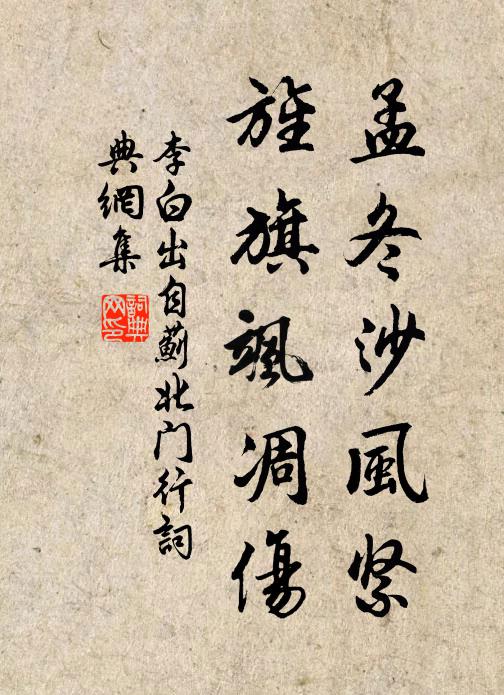 孟冬沙風緊
旌旗颯凋傷
李白出自薊北門行詞
典網集
詞典
网印